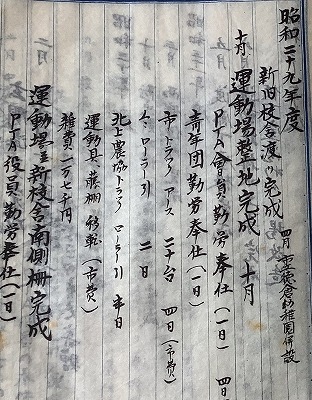 昭和二十九年度
新旧校舎渡り完成 四月
幼稚園併設
十月 運動場整地完成 十月
PTA會員勤労奉仕(一日) 四日
青年団勤労奉仕(一日)
市トラック アース 二十台 四日(市費)
〃 ローラー引 二日
北上農協トラック ローラー引 半日
運動具 藤棚 移転(市費)
雑費一万七千円
運動場 新校舎南側柵完成
PTA役員勤労奉仕(一日)